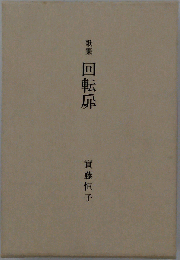 歌集
回転扉
實藤恒子